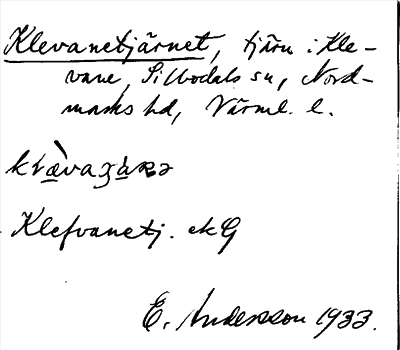 Klevanetjärnet, tjärn i Kle-
vane, Sillbodals sn, Nord-
marks hd, Värml. l.
Klefvanetj. ekG
E. Andersson 1933.